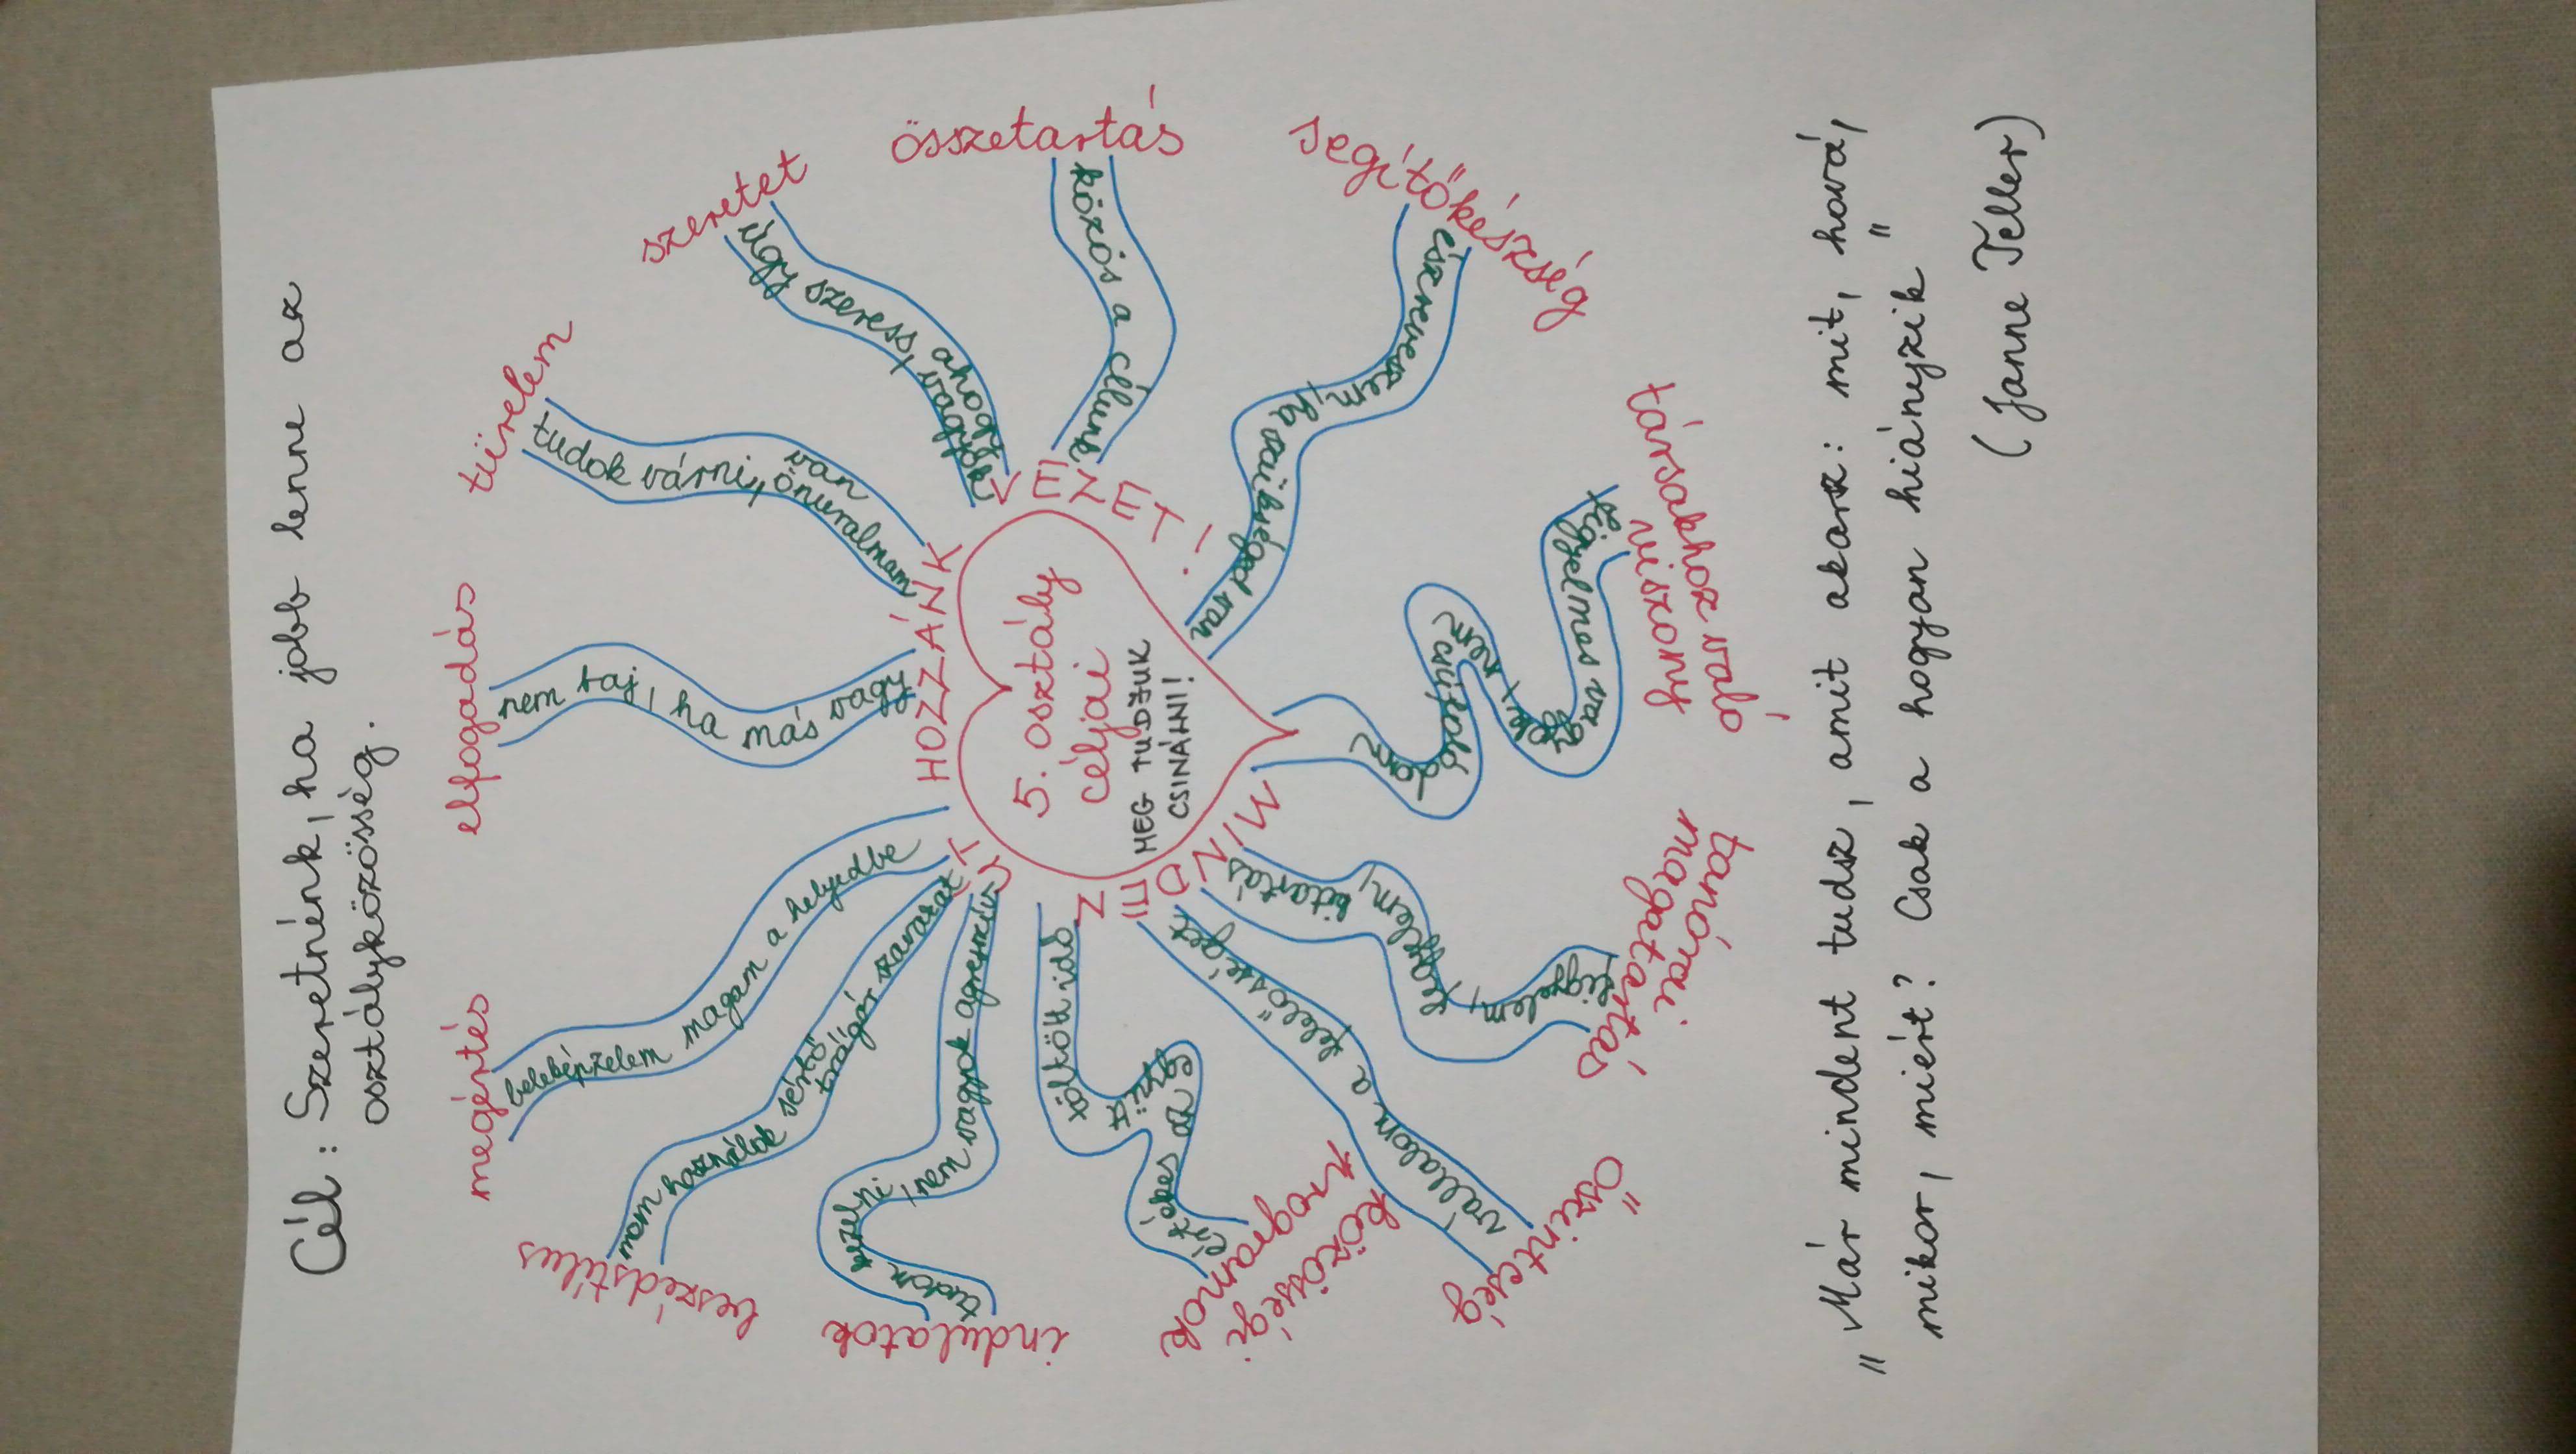 Cél: Szeretnénk, ha jobb lenne az
osztályközösség.
megértés
beleképzelem magam a helyedbe
elfogadás
nem baj, ha más vagy
türelem
tudok várni, van
önuralmam
szeretet
úgy szeress, ahogy
vagyok
összetartás
közös a célunk
segítőkészség
észreveszem,
ha szükséged van
társakhoz való
viszony
figyelmes vagyok, nem
csúfolódom
tanórai
magatartás
figyelem,
fegyelem, kitartás
Őszinteség
vállalom a felelősséget
közösségi
programok
együtt
töltött idő
indulatok
tudom kezelni, nem vagyok agresszív
beszédstílus
nem használok sértő,
trágár szavakat
MINDEN ÚT HOZZÁNK VEZET!
5. osztály
céljai
MEG TUDJUK
CSINÁLNI!
"Már mindent tudsz, amit akarsz: mit, hová,
mikor, miért? Csak a hogyan hiányzik"
(Janne Teller)